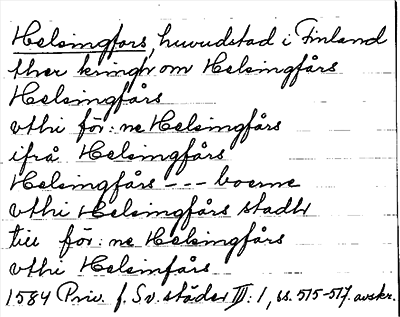 Helsingfors, huvudstad i Finland
ther kringh om Helsingfårs
Helsingfårs
vthi för:ne Helsingfårs
ifrå Helsingfårs
Helsingfårs --- boerne
vthi Helsingfårs stadh
till för:ne Helsingfårs
vthi Helsinfårs
1584 Priv. f. Sv. städer III:1, ss. 515-517. avskr.